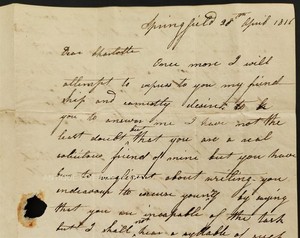 Springfield 20th April 1816
Dear Charlotte
Once more I will
attempt to express to you my friend
ship and earnestly desire to be
you to answer me I have not the
least doubt but that you are a real
solicitous friend of mine but you have
been so negligent about writing you
endeavour to excuse yourself by saying
that you are incapable of the task
but I shall hear a syllable of such